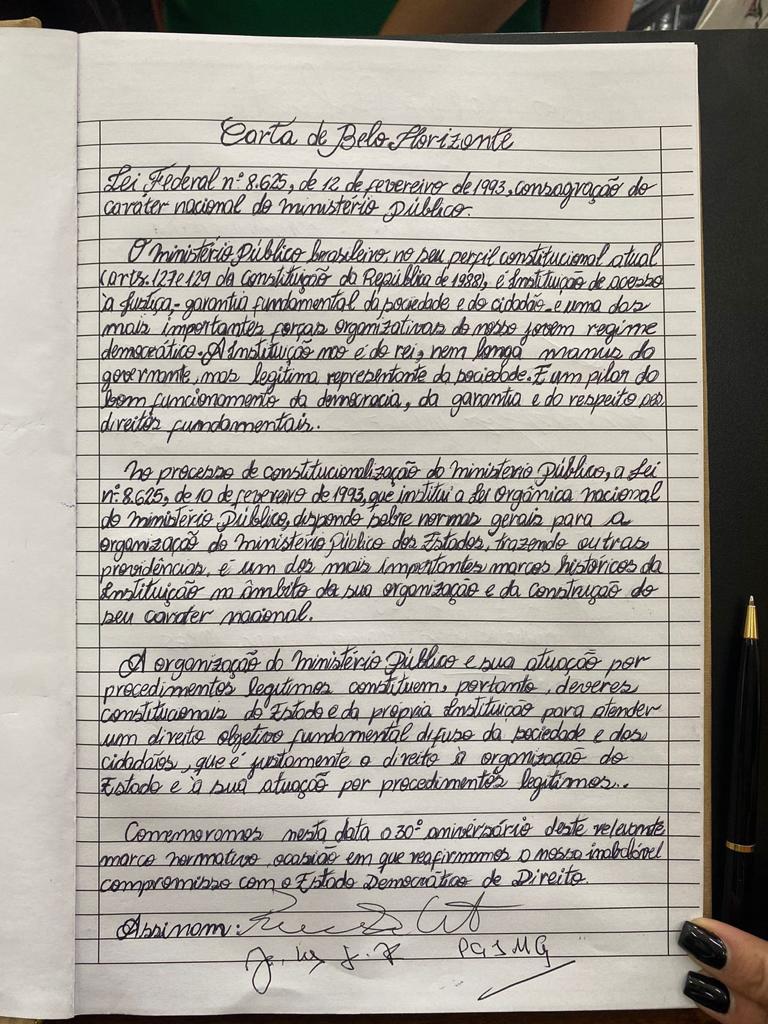 Carta de Belo Horizonte
Lei Federal nº 8.625, de 12 de fevereiro de 1993, consagração do
caráter nacional do ministério Público.
O ministério Público brasileiro, no seu perfil constitucional atual
(arts. 127 e 129 da Constituição da República de 1988), é Instituição de acesso
à Justiça - garantia fundamental da sociedade e do cidadão - e uma das
mais importantes forças organizativas do nosso jovem regime
democrático. A Instituição não é do rei, nem longa manus do
governante, mas legítima representante da sociedade. É um pilar do
bom funcionamento da democracia, da garantia e do respeito aos
direitos fundamentais.
No processo de constitucionalização do ministério Público, a Lei
nº 8.625, de 10 de fevereiro de 1993, que institui a Lei Orgânica nacional
do ministério Público, dispondo sobre normas gerais para a
organização do ministério Público dos Estados, trazendo outras
providências, é um dos mais importantes marcos históricos da
Instituição no âmbito da sua organização e da construção do
seu caráter nacional.
A organização do ministério Público e sua atuação por
procedimentos legítimos constituem, portanto, deveres
constitucionais do Estado e da própria Instituição para atender
um direito objetivo fundamental difuso da sociedade e dos
cidadãos, que é justamente o direito à organização do
Estado e à sua atuação por procedimentos legítimos..
Comemoramos nesta data o 30º aniversário deste relevante
marco normativo, ocasião em que reafirmamos o nosso inabalável
compromisso com o Estado Democrático de Direito.
Assinam:
PGJMG